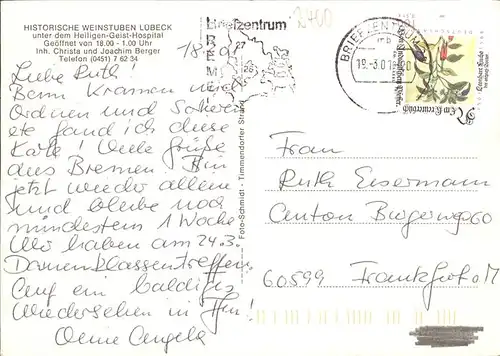 HISTORISCHE WEINSTUBEN LÜBECK
unter dem Heiligen-Geist-Hospital
Geöffnet von 18.00 - 1.00 Uhr
Inh. Christa und Joachim Berger
Telefon (0451) 7 62 34
Liebe Ruth!
Beim Kramen und
Ordnen und Sortieren
fand ich diese
Karte! Viele Grüße
aus Bremen. Bin
jetzt wieder allein
und bleibe noch
mindestens 1 Woche
Wir haben am 24.3.
Damenklassentreffen
Auf ein baldiges
Wiedersehen in
Deine Angela
Foto-Schmidt - Timmendorfer Strand
Briefzentrum
BREMEN
28
2400
BRIEFZENTRUM
19.-3.01
Frau
Ruth Eisermann
Anton Burgerweg 60
60599 Frankfurt a. M